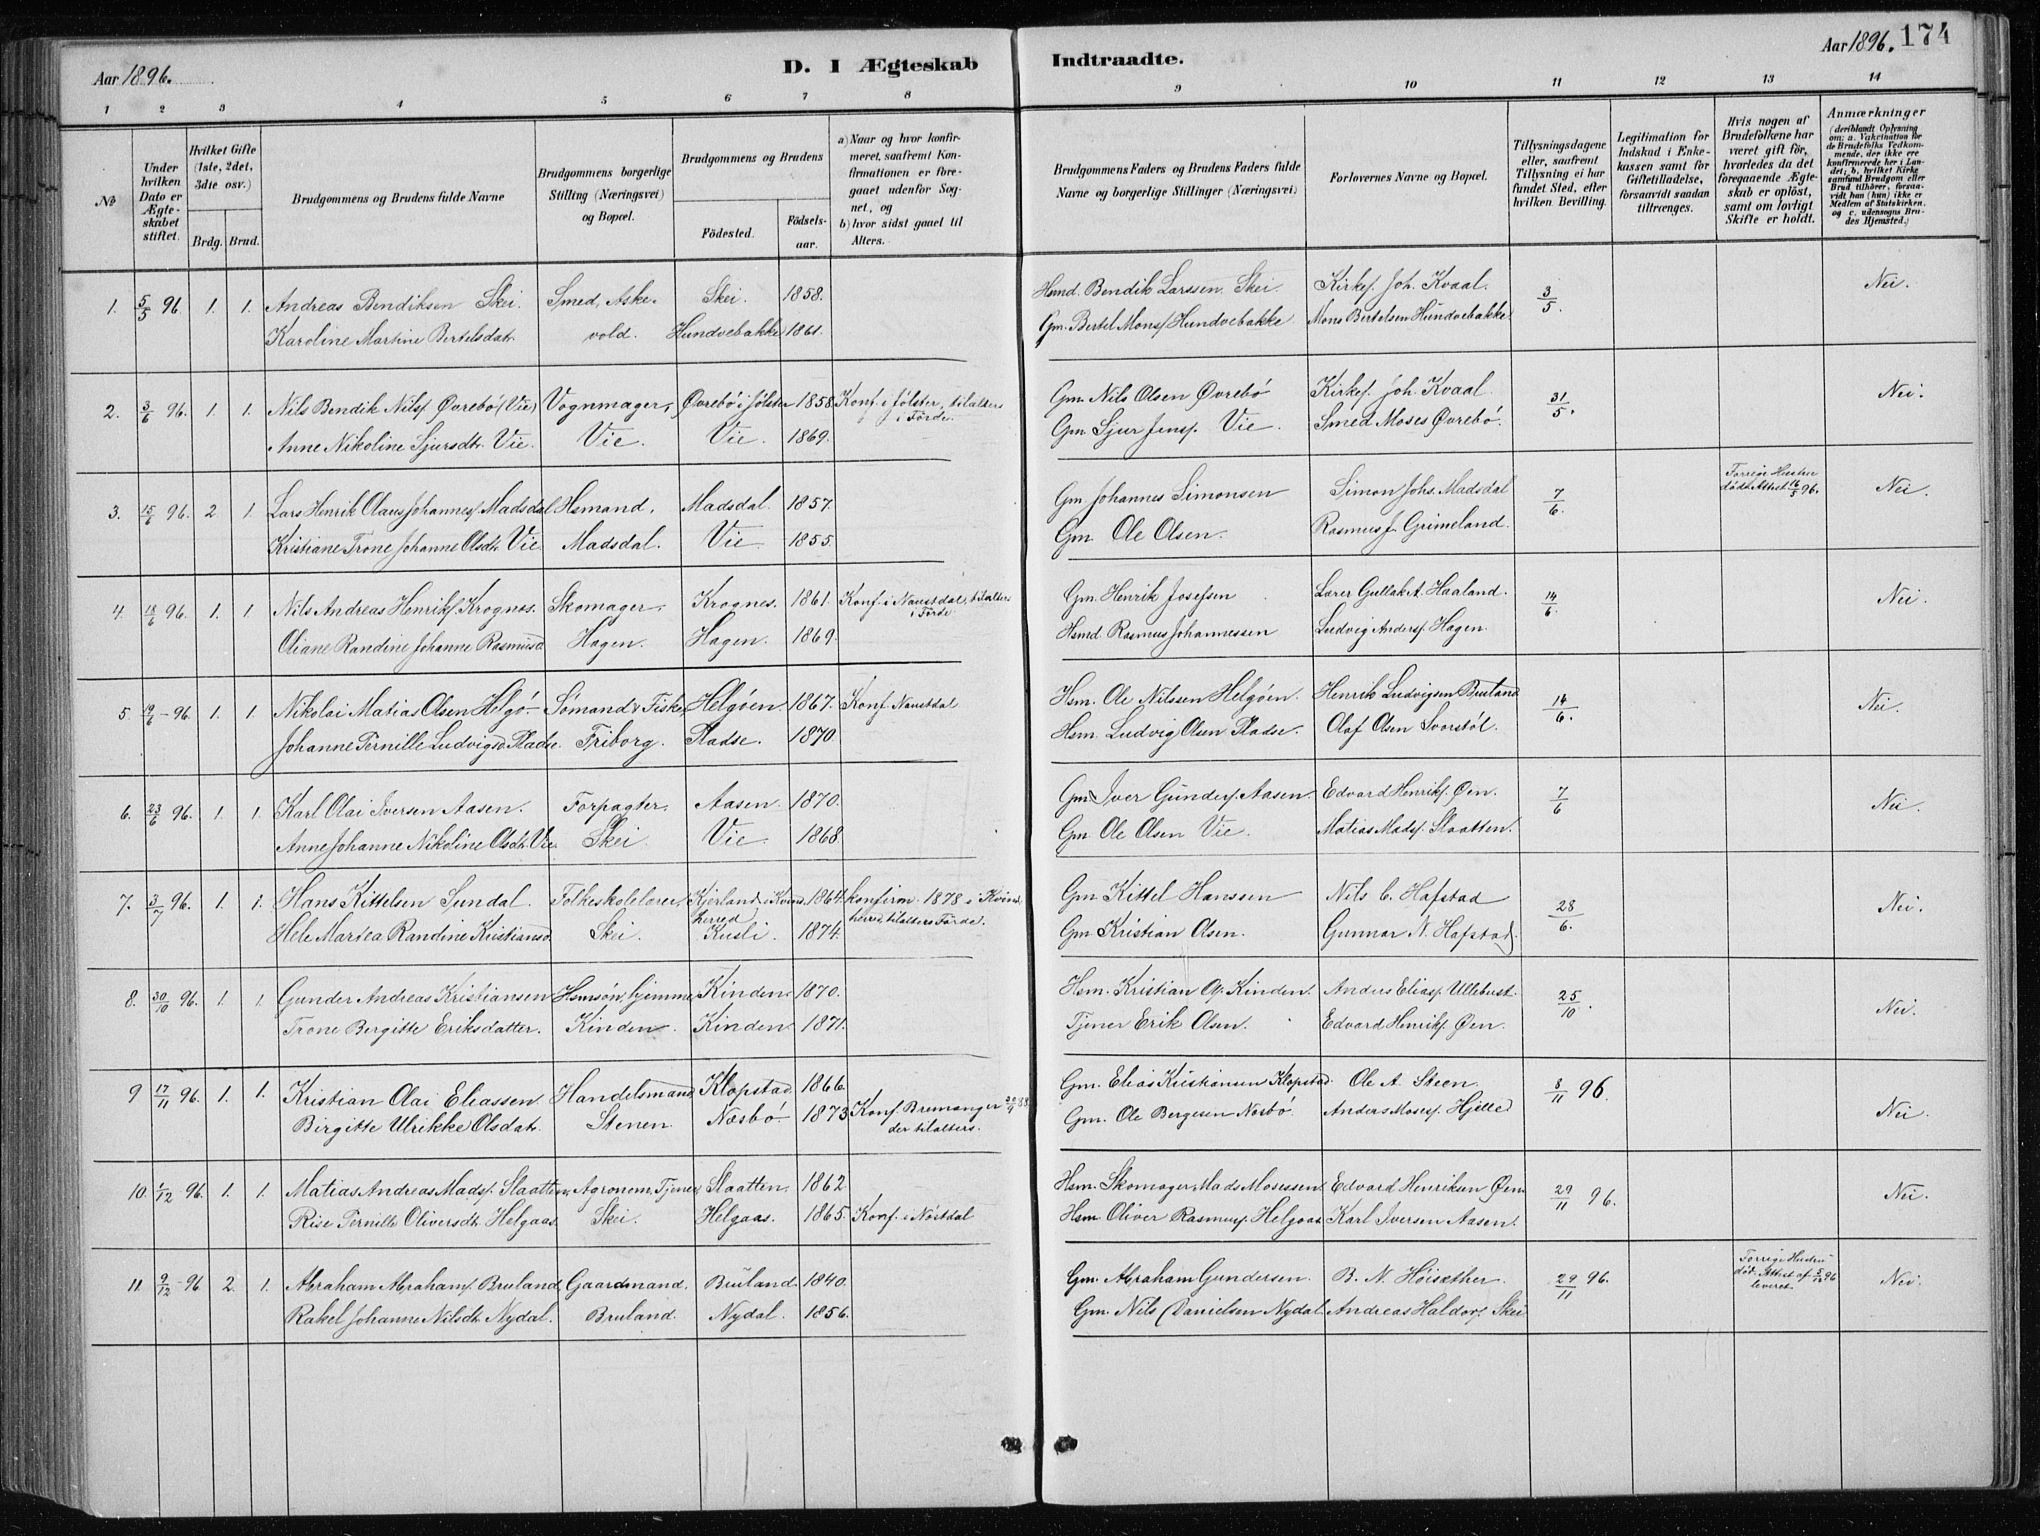 Aar 1896.
D. I Ægteskab Indtraadte.
Aar 1896. 174
1 2 3 4 5 6 7 8 9 10 11 12 13 14
No
Under hvilken Dato er Ægteskabet stiftet.
Hvilket Gifte (1ste, 2det, 3die osv.)
Brdg. Brud.
Brudgommens og Brudens fulde Navne
Brudgommens borgerlige Stilling (Næringsvei) og Bopæl.
Brudgommens og Brudens
Födested. Födsels-aar.
a) Naar og hvor konfirmeret, saafremt Konfirmationen er foregaaet udenför Sognet, og b) hvor sidst gaaet til Alters.
Brudgommens Faders og Brudens Faders fulde Navne og borgerlige Stillinger (Næringsvei)
Forlovernes Navne og Bopæl.
Tillysningsdagene eller, saafremt Tillysning ei har fundet Sted, efter hvilken Bevilling.
Legitimation for Indskud i Enkekassen samt for Giftetilladelse, forsaavidt saadan tiltrænges.
Hvis nogen af Brudefolkene har været gift för, hvorledes da det foregaaende Ægteskab er oplöst, samt om lovligt Skifte er holdt.
Anmærkninger (deriblandt Oplysning om: a. Vakcination for de Brudefolks Vedkommende, der ikke ere konfirmerede her i Landet; b. hvilket Kirkesamfund Brudgom eller Brud tilhörer, forsaavidt han (hun) ikke er Medlem af Statskirken, og c. udensogns Brudes Hjemsted.)
1. 5/5 96. 1. 1. Andreas Bendiksen Skei. Smed, Aske- Skei. 1858. Hsmd. Bendik Larssen Skei Kirkes. Joh. Kvaal. 3/5. Nei.
Karoline Martine Bertelsdatr. vold. Hundvebakke 1861. Gm. Bertel Monss. Hundvebakke Mons Bertelsen Hundvebakke
2. 3/6 96. 1. 1. Nils Bendik Nilss. Øvrebö (Vie) Vognmager, Øvrebö i Jölster 1858. Konf. i Jölster, tilalters i Förde Gm. Nils Olsen Øvrebö Kirkes. Joh. Kvaal. 31/5. Nei.
Anne Nikoline Sjursdtr. Vie. Vie. Vie. 1869. Gm. Sjur Jenss. Vie. Smed Moses Øvrebö.
3. 15/6 96. 2 1. Lars Henrik Olaus Johanness. Madsdal Hsmand. Madsdal. 1857. Gm Johannes Simonsen Simon Johs. Madsdal 7/6. Forrige Hustru död. Attest 16/5 96. Nei.
Kristiane Trone Johanne Olsdtr. Vie. Madsdal. Vie. 1855. Gm. Ole Olsen. Rasmus J. Grimeland.
4. 18/6 96. 1. 1. Nils Andreas Henriks. Krognes. Skomager. Krognes. 1861. Konf. i Naustdal, tilalters i Förde Gm. Henrik Josefsen Lærer Gullak A. Haaland. 14/6. Nei.
Oliane Randine Johanne Rasmusd. Hagen. Hagen. 1869. Hsmd. Rasmus Johannessen Ludvig Anders. Hagen
5. 19/6 - 96. 1. 1. Nikolai Matias Olsen Helgö - Sömand & Fisker Helgöen. 1867. Konf. Naustdal Hsm. Ole Nilssen Helgöen. Henrik Ludvigsen Bruland 14/6. Nei.
Johanne Pernille Ludvigsd. Pladse. Friborg. Pladse. 1870. Hsm. Ludvig Olsen Pladse. Olaf Olsen Svorstöl.
6. 23/6 96. 1. 1. Karl Olai Iversen Aasen. Forpagter. Aasen. 1870. Gm. Iver Gunders. Aasen. Edvard Henriks. Øen. 7/6 Nei.
Anne Johanne Nikoline Olsdtr. Vie. Skei. Vie. 1868. Gm. Ole Olsen Vie. Matias Mads. Slaatten.
7. 3/7 96. 1. 1. Hans Kittelsen Sundal. Folkeskolelærer Kjerland i Kvinnherred 1864. Konfirm. 1878 i Kvinnherred, tilalters Förde. Gm. Kittel Hanssen Nils C. Hafstad 28/6. Nei.
Hele Martea Randine Kristiansd. Skei. Kusli. 1874. Gm. Kristian Olsen. Gunnar N. Hafstad.
8. 30/10 96. 1. 1. Gunder Andreas Kristiansen Hsmsön, hjemme Kinden. 1870. Hsm. Kristian Ol. Kinden. Anders Elias. Ullebust. 25/10. Nei.
Trone Bergitte Eriksdatter. Kinden. Kinden. 1871. Tjener Erik Olsen. Edvard Henriks. Øen.
9 17/11 96. 1. 1. Kristian Olai Eliassen Handelsmand Klopstad. 1866. Gm. Elias Kristiansen Klopstad. Ole A. Steen. 8/11 96. Nei.
Birgitte Ulrikke Olsdatr. Stenen. Næsbö. 1873. Konf. Bremanger 30/9 88. der tilalters. Gm. Ole Bergesen Nesbö. Anders Moses. Hjelle
10. 1/12 96. 1. 1. Matias Andreas Mads. Slaatten Agronom, Tjener Slaatten. 1862. Hsm. Skomager Mads Mosessen. Edvard Henriksen Øen. 29/11 96. Nei.
Rise Pernille Oliversdtr. Helgaas. Skei. Helgaas. 1865. Konf. i Nöstdal Hsm. Oliver Rasmus. Helgaas Karl Iversen Aasen.
11. 9/12 - 96 2. 1. Abraham Abrahams. Bruland. Gaardmand. Bruland. 1840. Gm. Abraham Gundersen. B. N. Höisæther. 29/11 96. Forrige Hustru död. Attest af 5/12 96 leveret. Nei.
Rakel Johanne Nilsdtr. Nydal. Bruland. Nydal. 1856. Gm. Nils Danielsen Nydal. Andreas Haldors. Skei